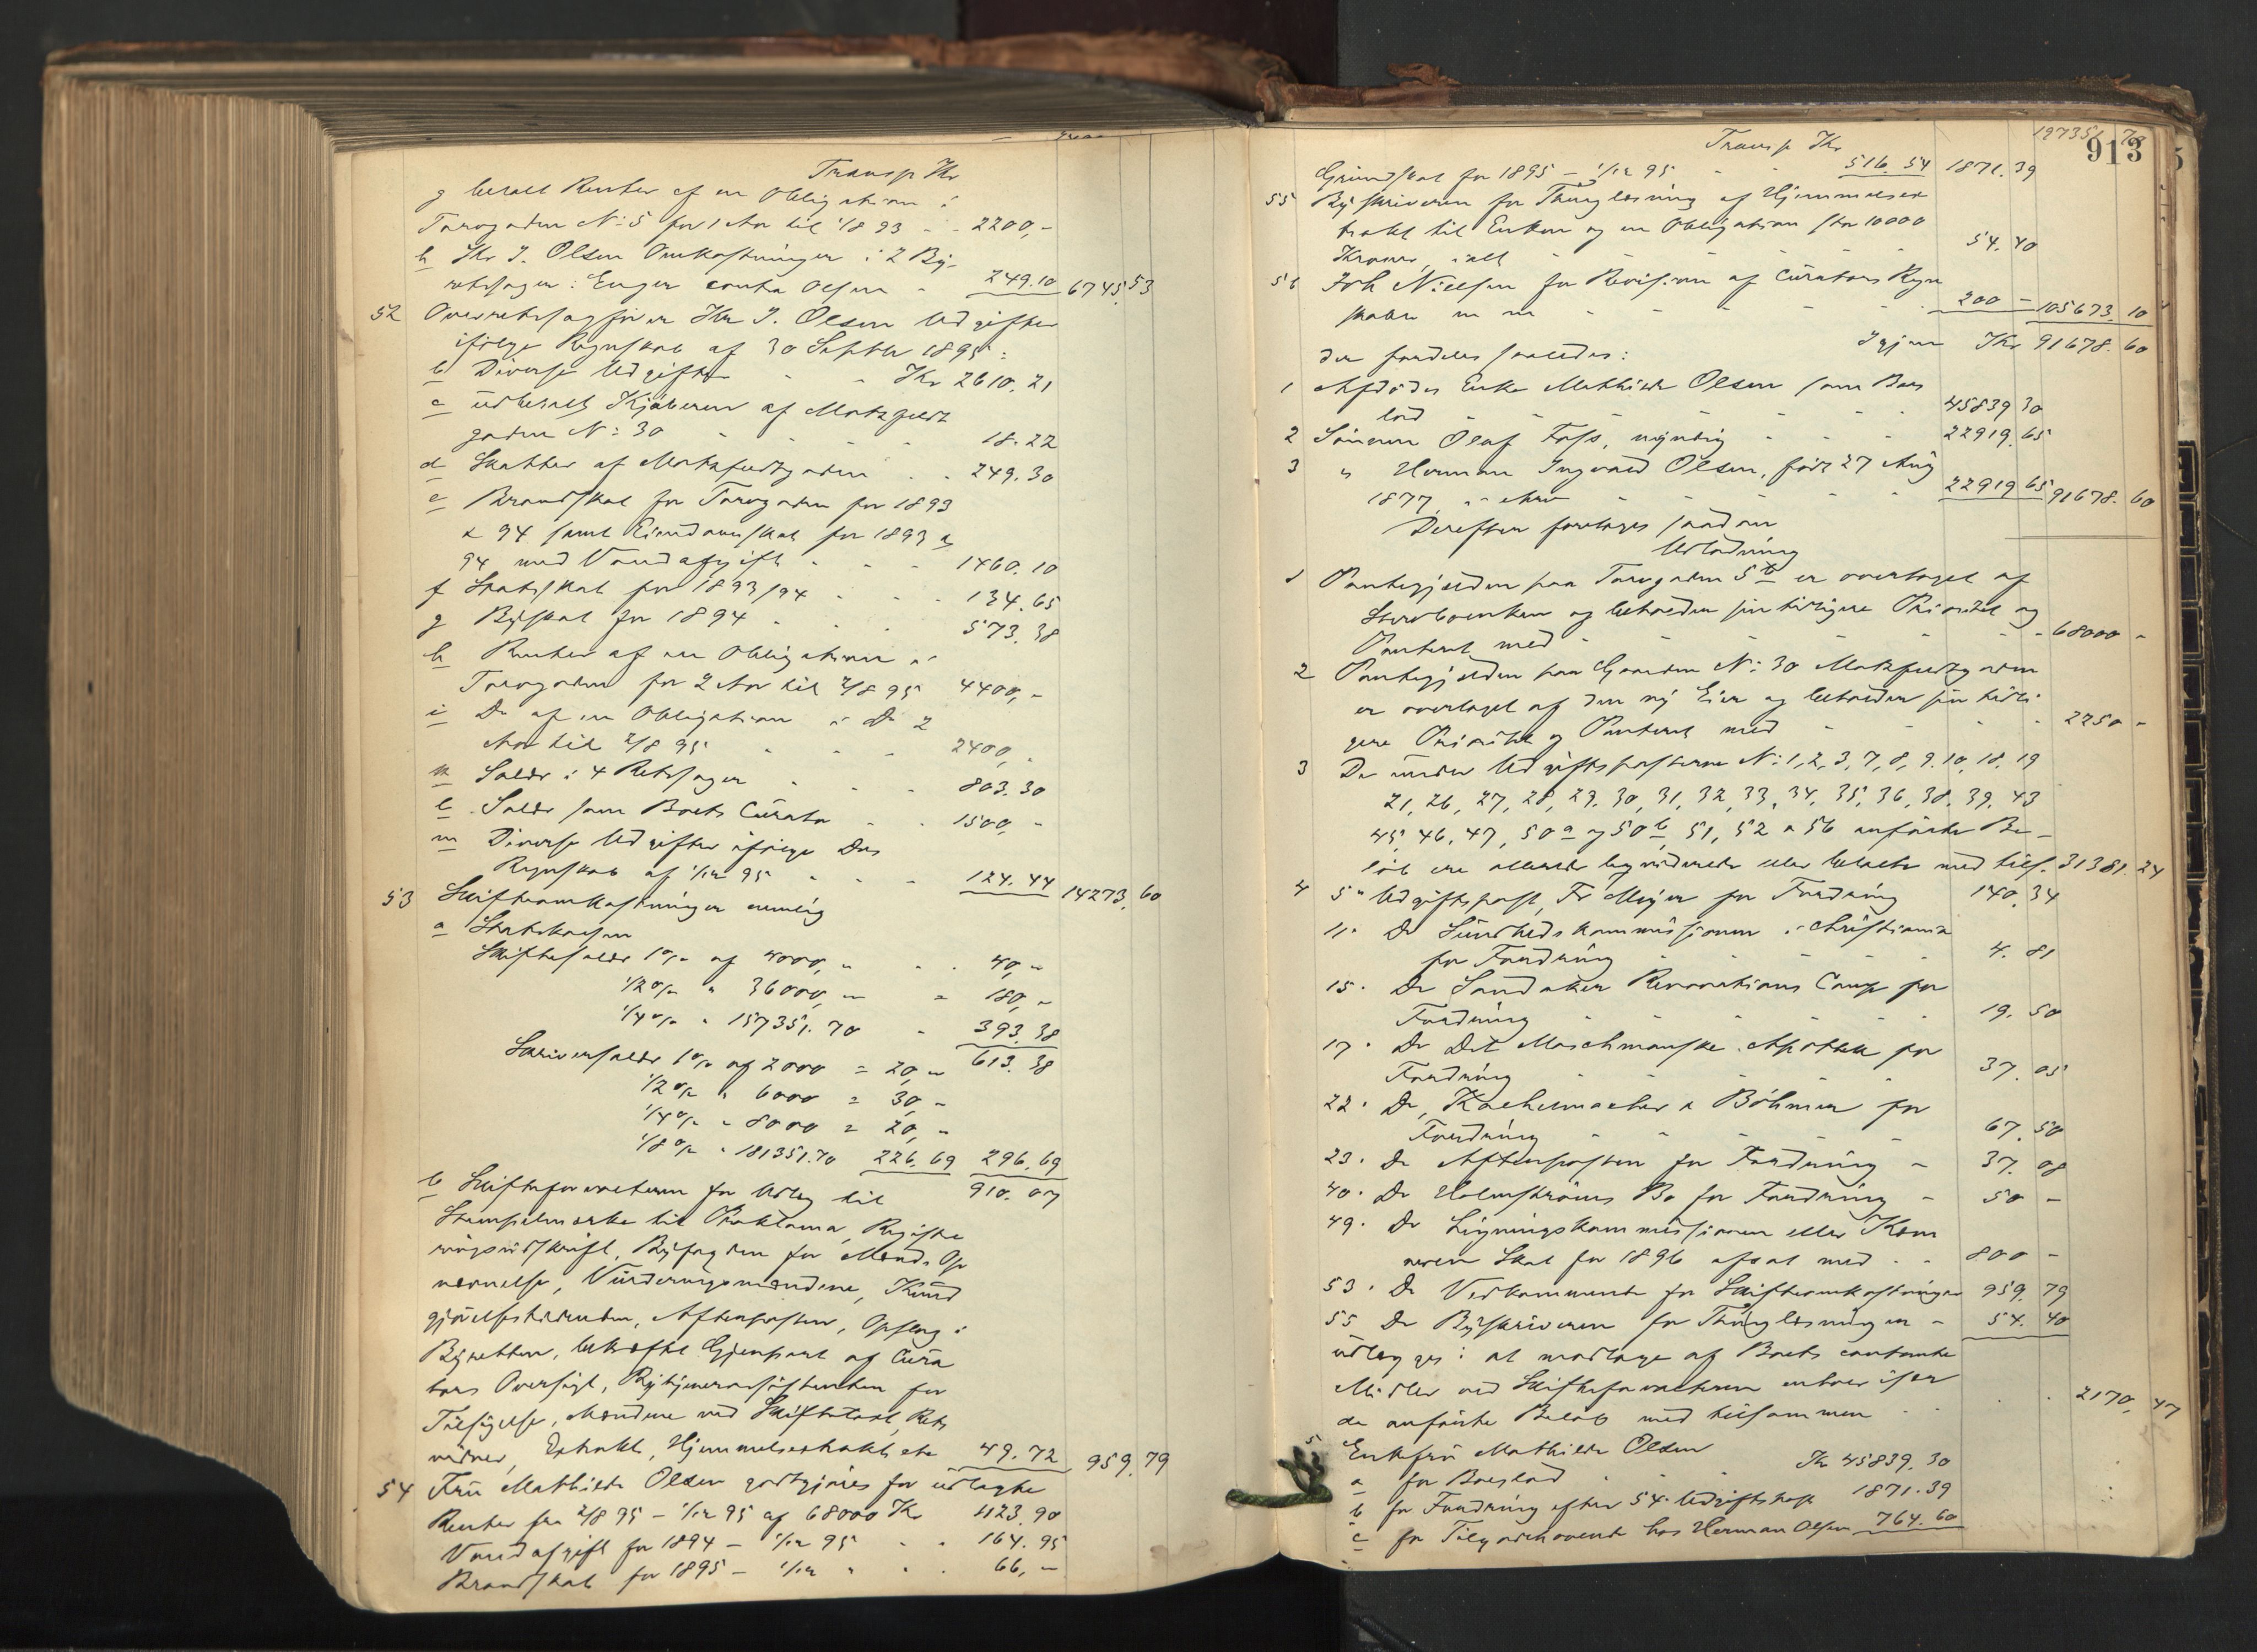 Transp Kr
g betalt Renter af en Obligation i
Torvgaden N: 5 for 1 Aar til 2/8 93 - - 2200,-
h Hr J. Olsen Omkostninger i 2 By-
retssager: Enger contra Olsen - 249.10 6745.53
52 Overretssagfører Hr J. Olsen Udgifter
ifølge Regnskab af 30 Septbr 1895:
b Diverse Udgifter - - Kr 2610.21
c udbetalt Kjøberen af Motzfeldt
gaden N: 30 - - - - 18.22
d Skatter af Motzfeldtgaden . . 249.30
e Brandskat for Torvgaden for 1893
& 94 samt Eiendomsskat for 1893 og
94 med Vandafgift - - - 1460.10
f Statsskat for 1893/94 - - - 134.65
g Byskat for 1894 - - - 573.38
h Renter af en Obligation i
Torvgaden for 2 Aar til 2/8 95 4400,-
i Do af en Obligation i Do 2
Aar til 2/8 95 - - - 2400,-
k Salær i 4 Retssager - - - 803.30
l Salær som Boets Curator - - 1500,-
m Diverse Udgifter ifølge Dos
Regnskab af 1/12 95 - - - 124.44 14273.60
53 Skifteomkostninger nemlig
a Statskassen
Skiftesalær 1% af 4000,- - - 40,-
1/2% " 36000,- = 180,-
1/4% " 157351.70 - 393.38
Skriversalær 1% af 2000 = 20,- 613.38
1/2% " 6000 = 30,-
1/4% " 8000 = 20,-
1/8% " 181351.70 226.69 296.69
b Skifteforvalteren for Udlæg til 910.07
Stempelmærke til Proklama, Registre
ringsudskrift, Byfogden for Mænds Op
nævnelse, Vurderingsmændene, Kund
gjørelsestidenden, Aftenposten, Opslag i
Byretten, bekræftet Gjenpart af Cura
tors Oversigt, for
Tilsigelse, Mændene ved Skiftetaxt, Rets
vidner, Extrakt, Hjemmelsextrakt etc 49.72 959.79
54 Fru Mathilde Olsen godtgjøres for udlagte
Renter fra 2/8 95 - 1/12 95 af 68000 Kr 1123.90
Vandafgift for 1894 - 1/12 95 - - 164.95
Brandskat for 1895 - 1/12 " - . 66,-
913
Transp Kr 197351 70
Grundskat for 1895 - 1/12 95 - - 516.54 1871.39
55 Byskriveren for Thinglæsning af Hjemmelsex
trakt til Enken og en Obligation stor 10000
Kroner, ialt - - - - - 54.40
56 Joh Nielsen for Revision af Curators Regn
skaber m m - - - - - 200 - 105673.10
Igjen Kr 91678.60
der fordeles saaledes:
1 Afdødes Enke Mathilde Olsen som Boes
lod - - - - - - 45839 30
2 Sønnen Olaf Foss, myndig - - - 22919.65
3 " Herman Ingvald Olsen, født 27 Aug
1877, - - - - - 22919 65 91678.60
Derefter foretages saadan
Udlodning
1 Pantegjælden paa Torvgaden 5 b er overtaget af
Stervboenken og beholder sin tidligere Prioritet og
Panteret med - - - - - - 68000 -
2 Pantegjælden paa Gaarden N: 30 Motzfeldtgaden
er overtaget af den ny Eier og beholder sin tidli
gere Prioritet og Panteret med - - - - 2250 -
3 De under Udgiftsposterne N: 1, 2, 3, 7, 8, 9. 10, 18, 19
21, 26, 27, 28, 29, 30, 31, 32, 33, 34, 35, 36, 38, 39, 43
45, 46, 47, 50 a og 50 b, 51, 52 & 56 anførte Be-
løb ere allerede berigtigede eller betalte med tils. 31381.24
4 5te Udgiftspost, Fr Meyer for Fordring 140.34
11. Do Sundhedskommissionen i Christiania
for Fordring - - - - - 4.81
15. Do Sandaker Renovations Comp for
Fordring - - - - - - 19.50
17. Do Det Maschmanske Apothek for
Fordring - - - - - - 37.05
22. Do, Kachelmacher & Böhmer for
Fordring - - - - - - 67.50
23. Do Aftenposten for Fordring - 37.08
40. Do Holmstrøms Bo for Fordring - 50 -
49. Do Ligningskommissionen eller Kæm
neren Skat for 1896 afsat med . . 800 -
53. Do Vedkommende for Skifteomkostninger 959.79
55 Do Byskriveren for Thinglæsningen - 54.40
udlægges: at modtage af Boets contante
Midler ved Skifteforvalteren enhver især
de anførte Beløb med tilsammen . . . . 2170.47
5 Enkefru Mathilde Olsen
a for Boeslod - - - Kr 45839.30
b for Fordring efter 54. Udgiftspost 1871.39
c for Tilgodehavende hos Herman Olsen 764.60